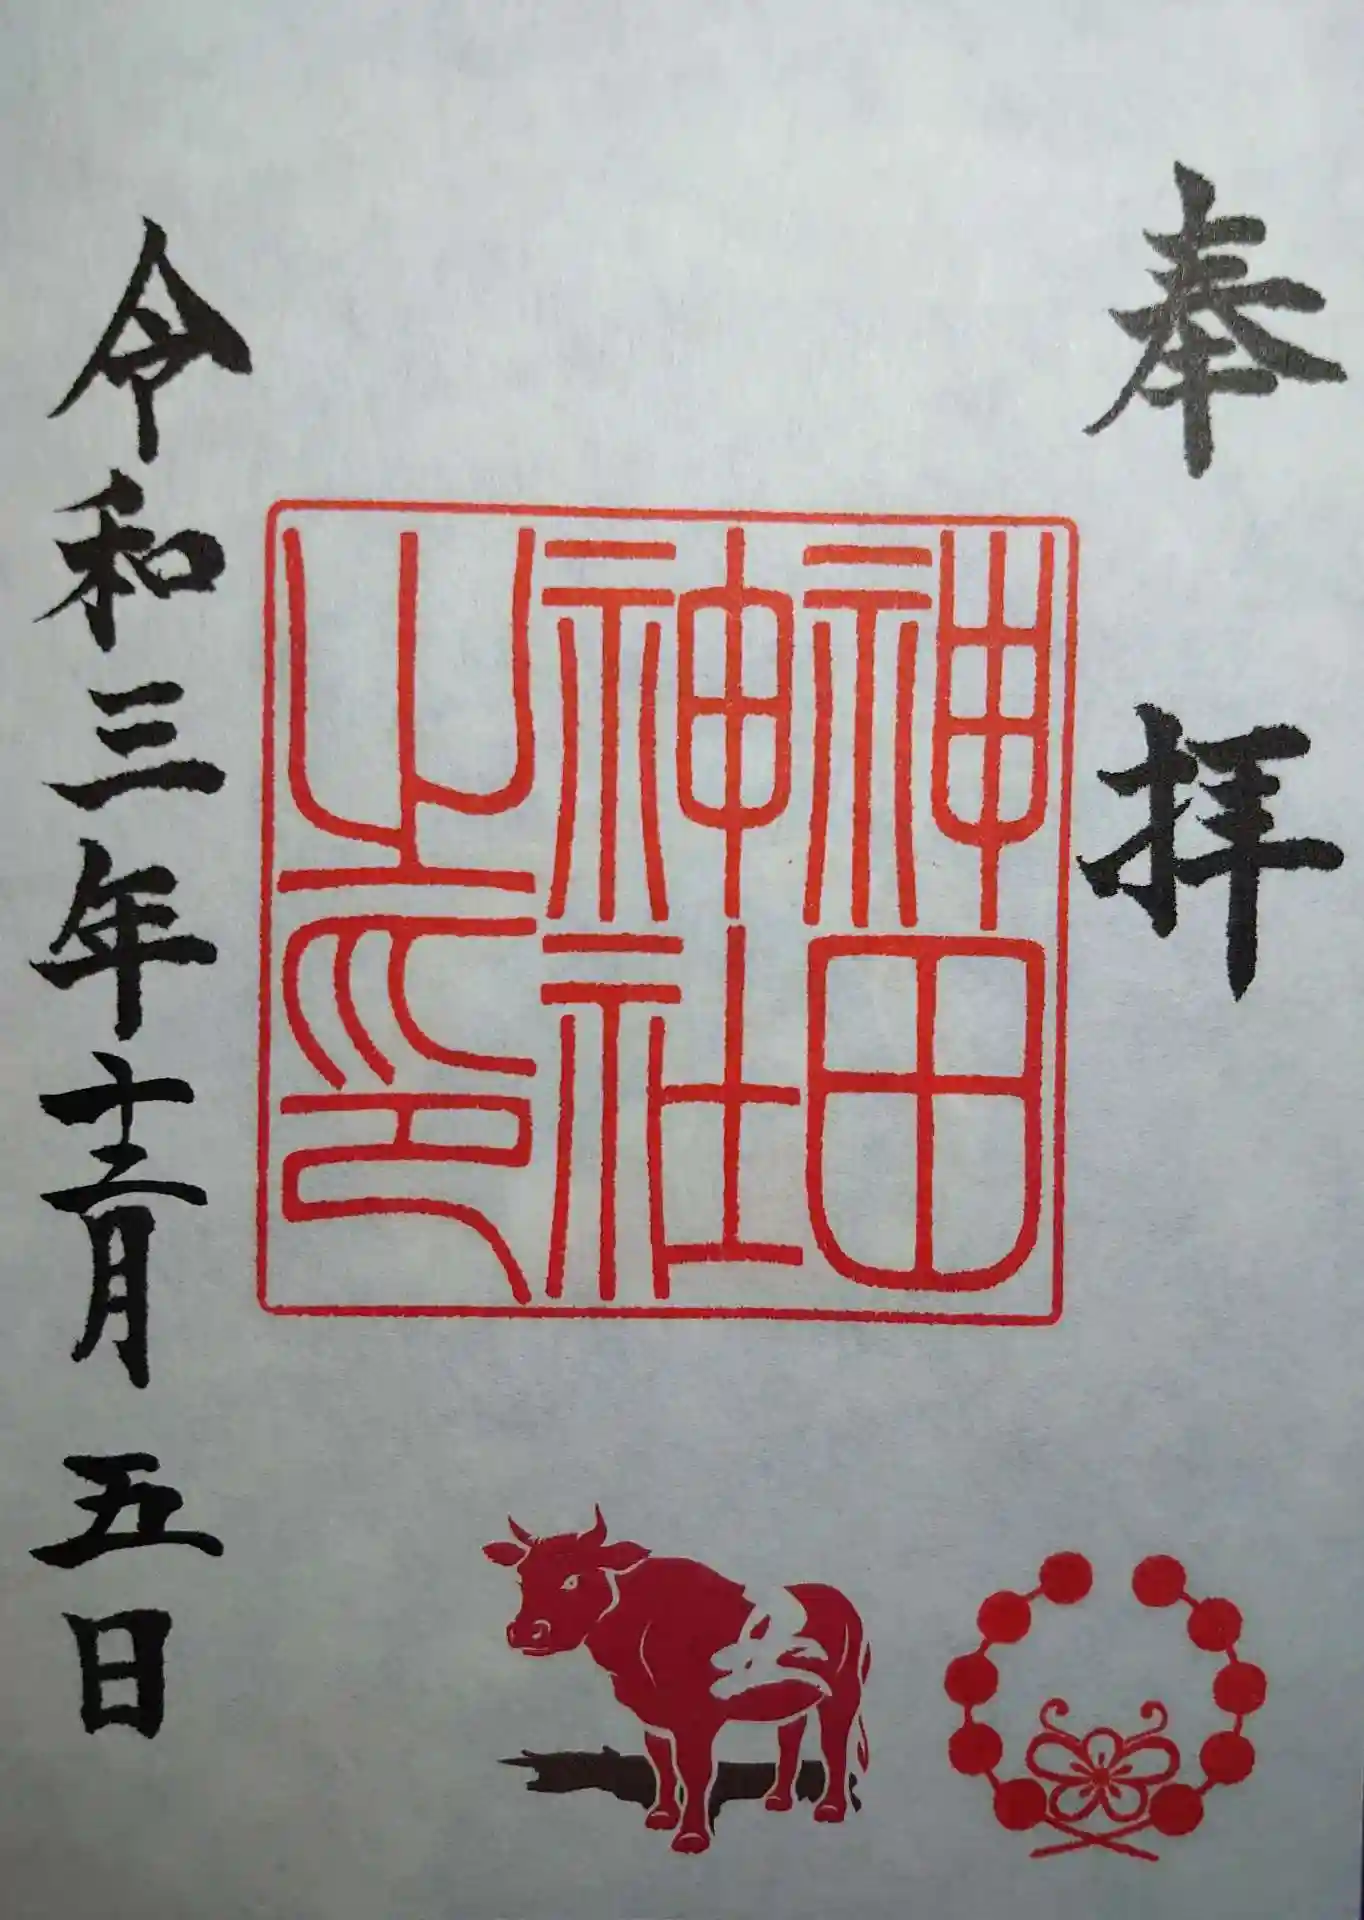 奉拝
神田
神社
之印
令和三年十二月五日